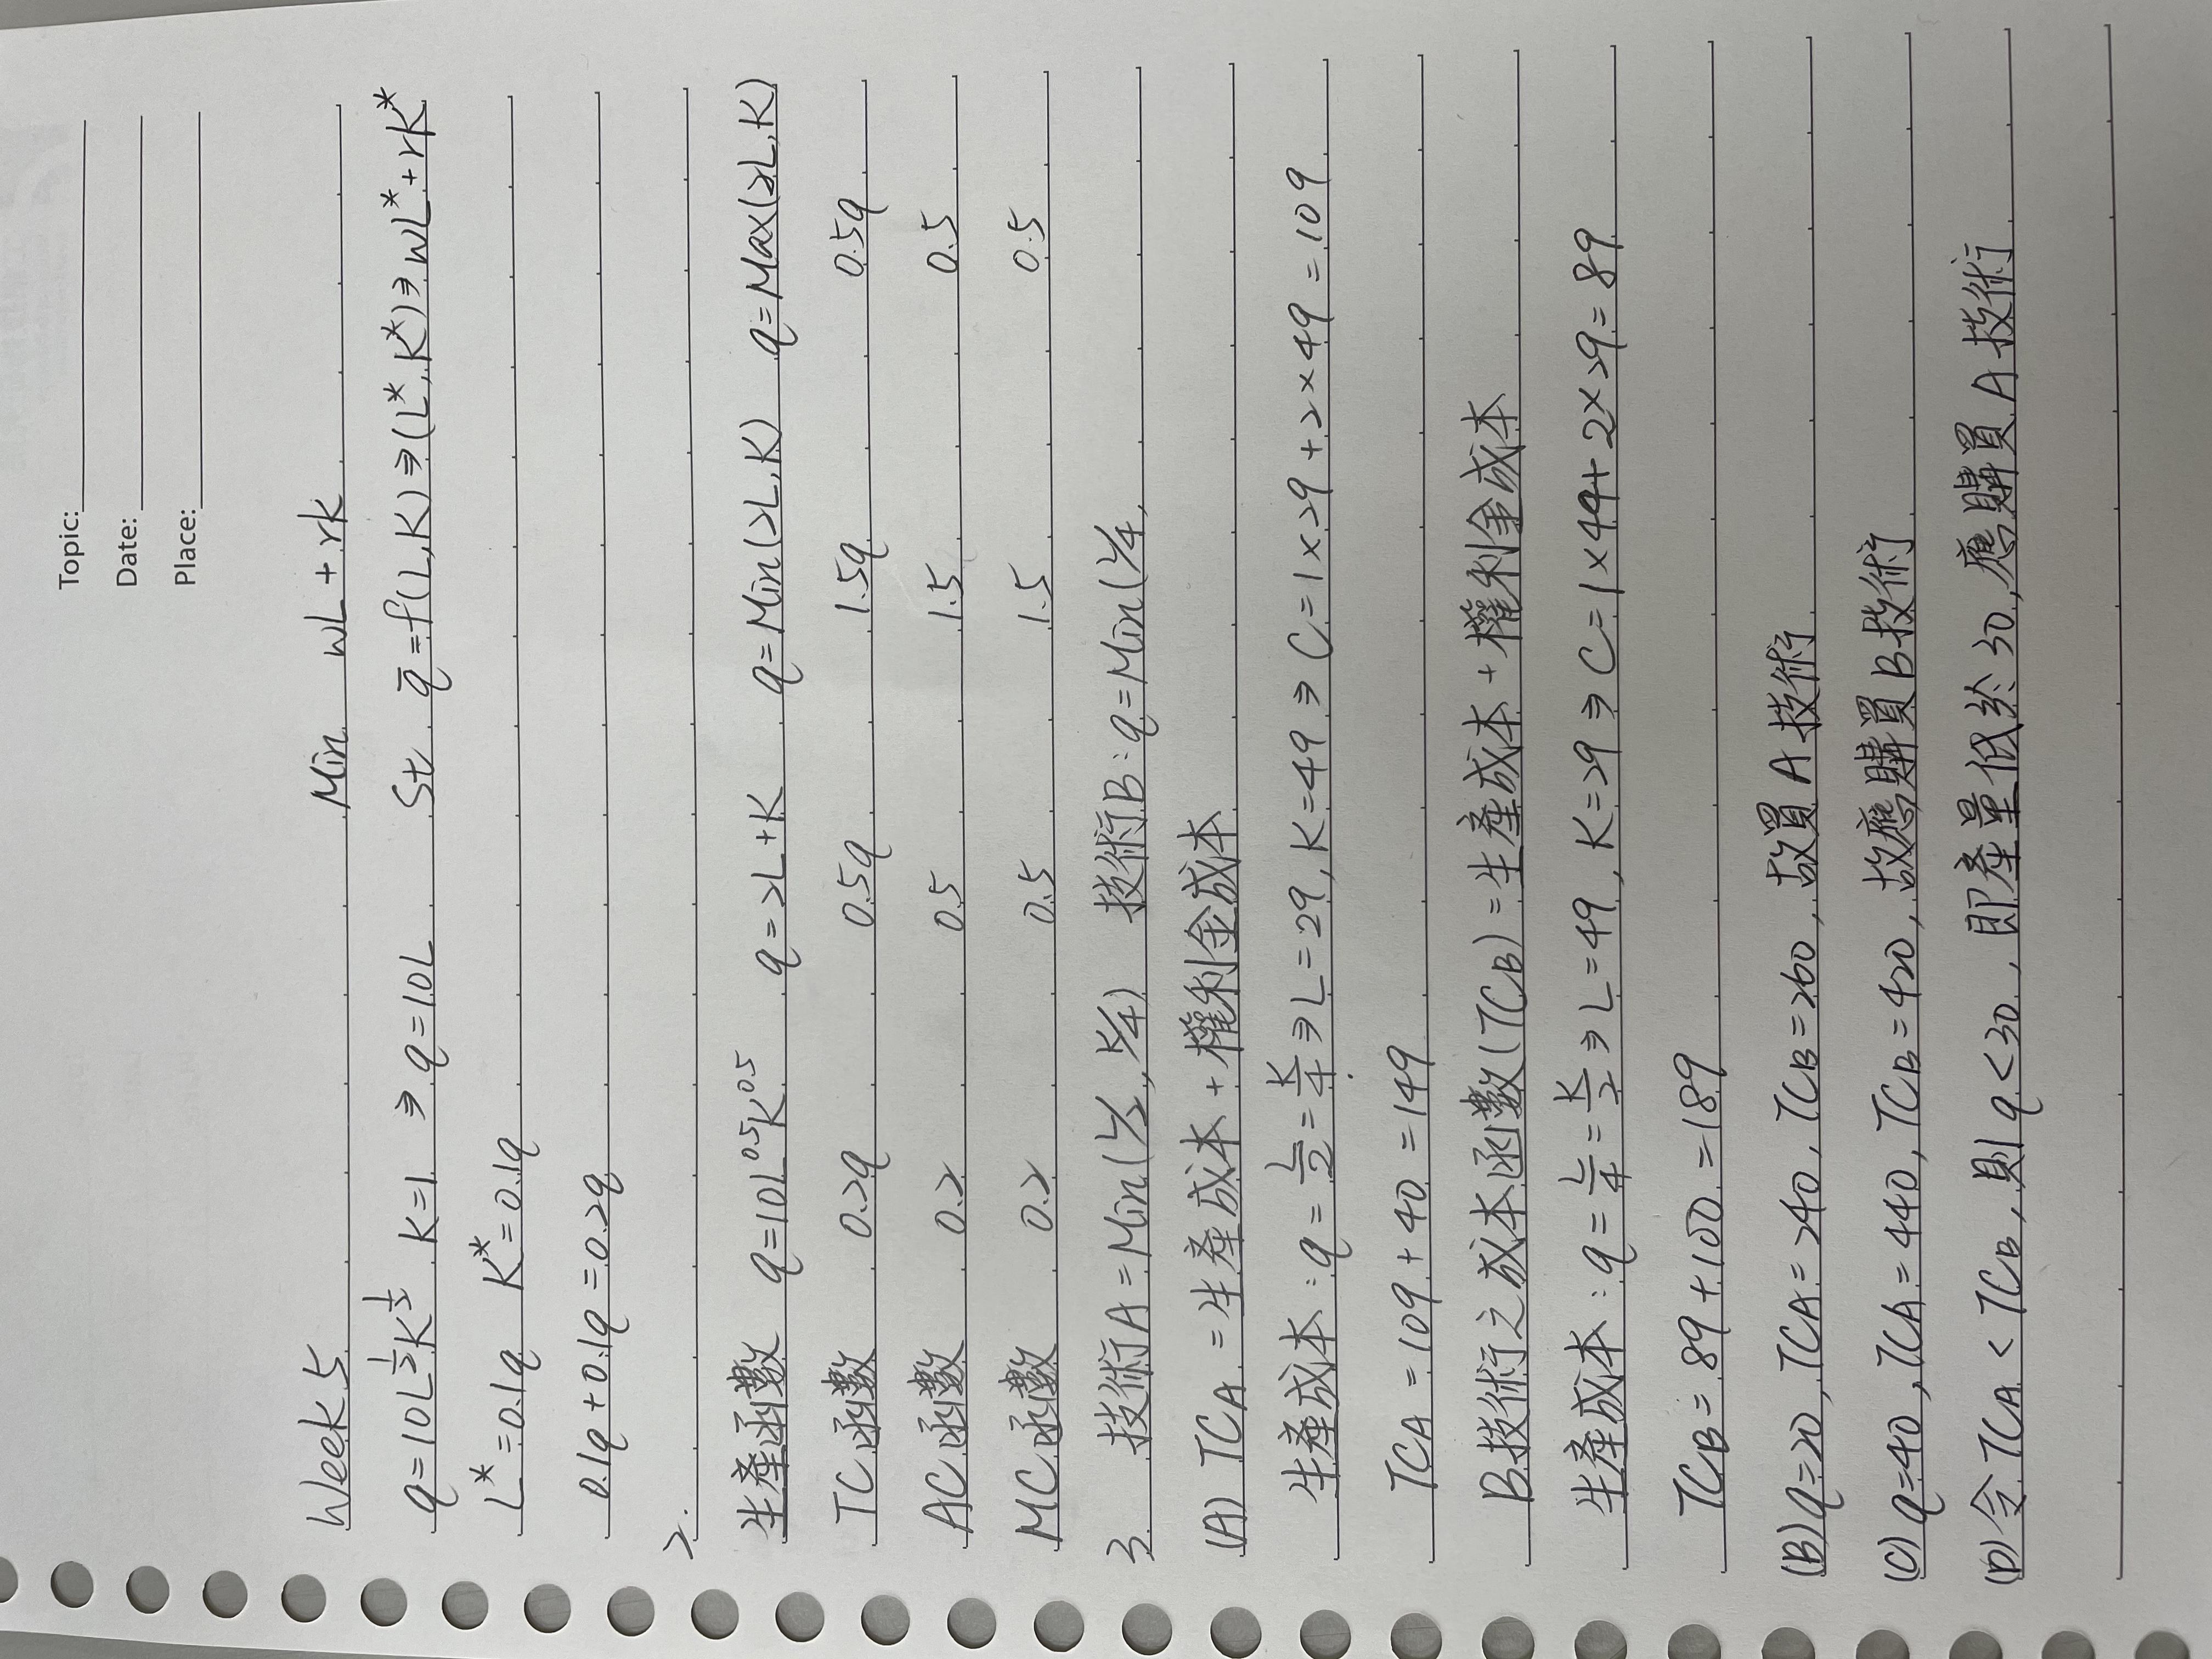 Topic:
Date:
Place:
Week 5 Min wL + rk
q=10L^{1/2}K^{1/2} K=1 ⇒ q=10L St q̄=f(L,K)⇒(L*,K*)⇒wL*+rK*
L*=0.1q K*=0.1q
0.1q+0.1q=0.2q
2.
生產函數 q=10L^{0.5}K^{0.5} q=2L+K q=Min(2L,K) q=Max(2L,K)
TC函數 0.2q 0.5q 1.5q 0.5q
AC函數 0.2 0.5 1.5 0.5
MC函數 0.2 0.5 1.5 0.5
3. 技術A=Min(L/2, K/4) 技術B:q=Min(L/4,
(A) TCA =生產成本+權利金成本
生產成本:q=L/2=K/4⇒L=2q, K=4q⇒C=1×2q+2×4q=10q
TCA=10q+40=14q
B技術之成本函數(TCB)=生產成本+權利金成本
生產成本:q=L/4=K/2⇒L=4q, K=2q⇒C=1×4q+2×2q=8q
TCB=8q+100=18q
(B)q=20, TCA=240, TCB=260, 故買A技術
(C)q=40, TCA=440, TCB=420, 故應購買B技術
(D)令TCA<TCB, 則q<30, 即產量低於30,應購買A技術